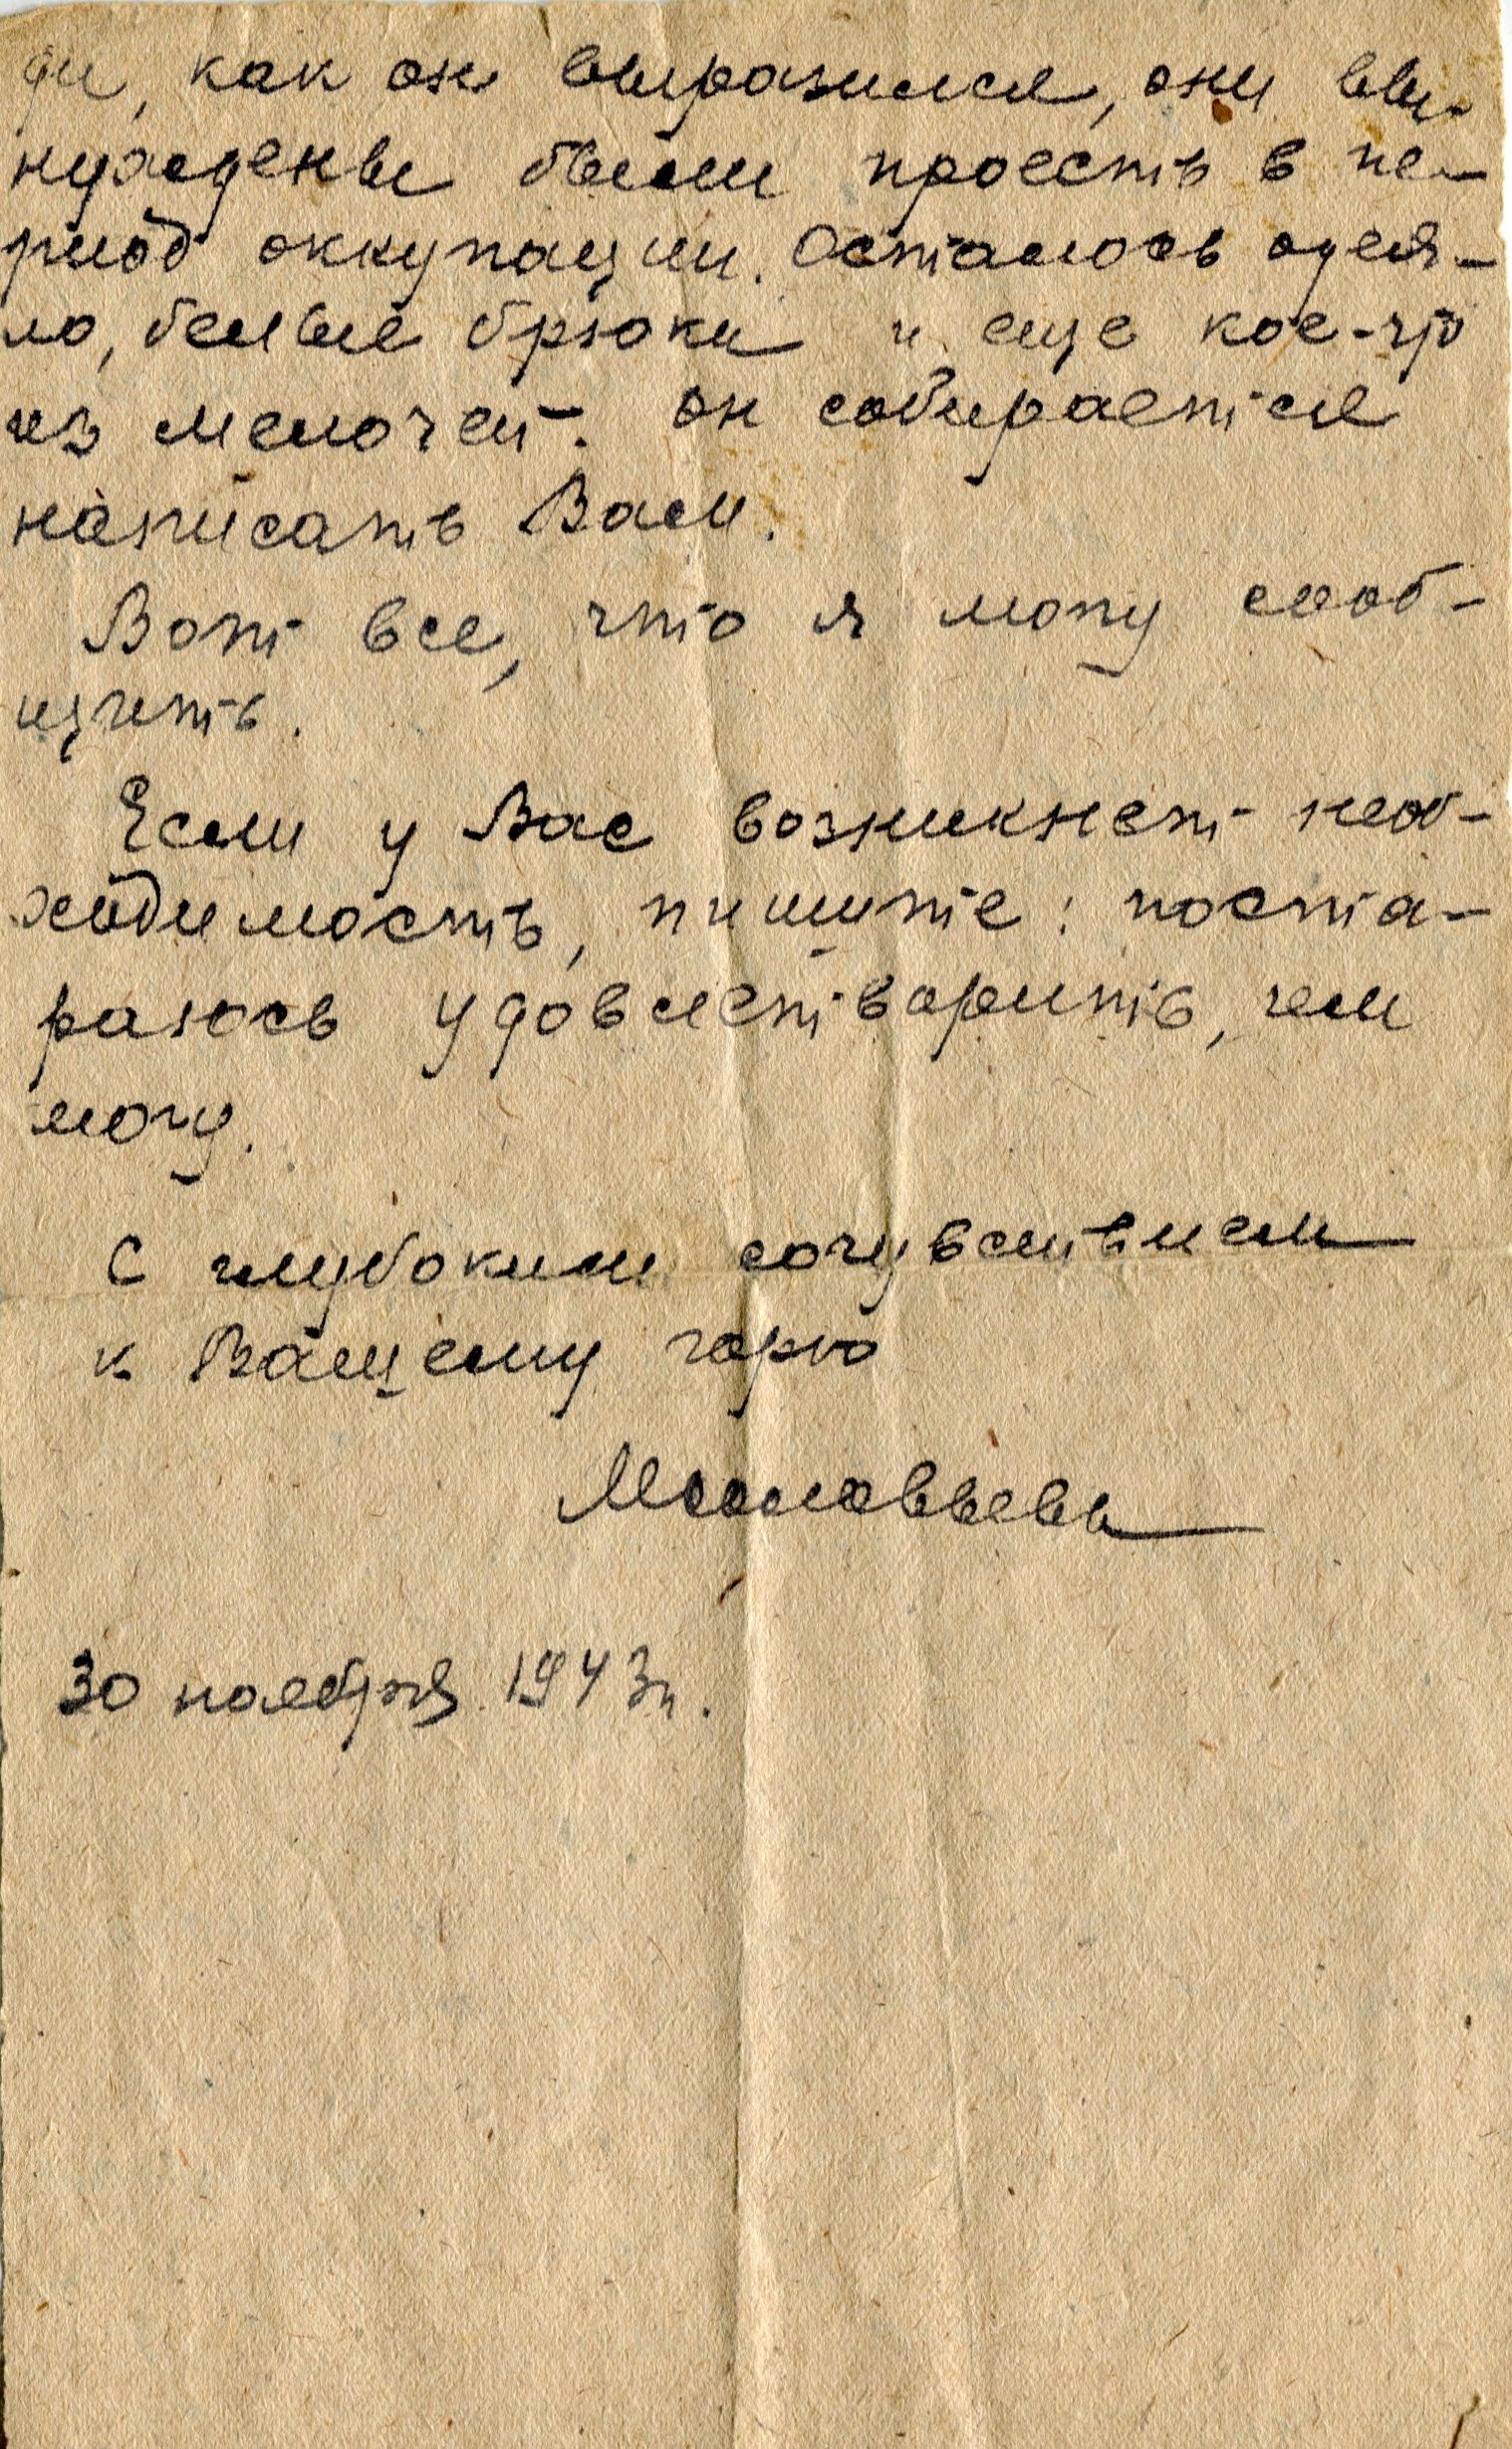 ди, как он выразился, они вы-
нуждены были проесть в пе-
риод оккупации. Осталось одея-
ло, белые брюки и еще кое-что
из мелочей. он собирается
написать Вам.
Вот все, что я могу сооб-
щить.
Если у Вас возникнет необ-
ходимость, пишите: поста-
раюсь удовлетворить, чем
могу.
С глубоким сочувствием
к Вашему горю
МСоловьева
30 ноября 1943г.